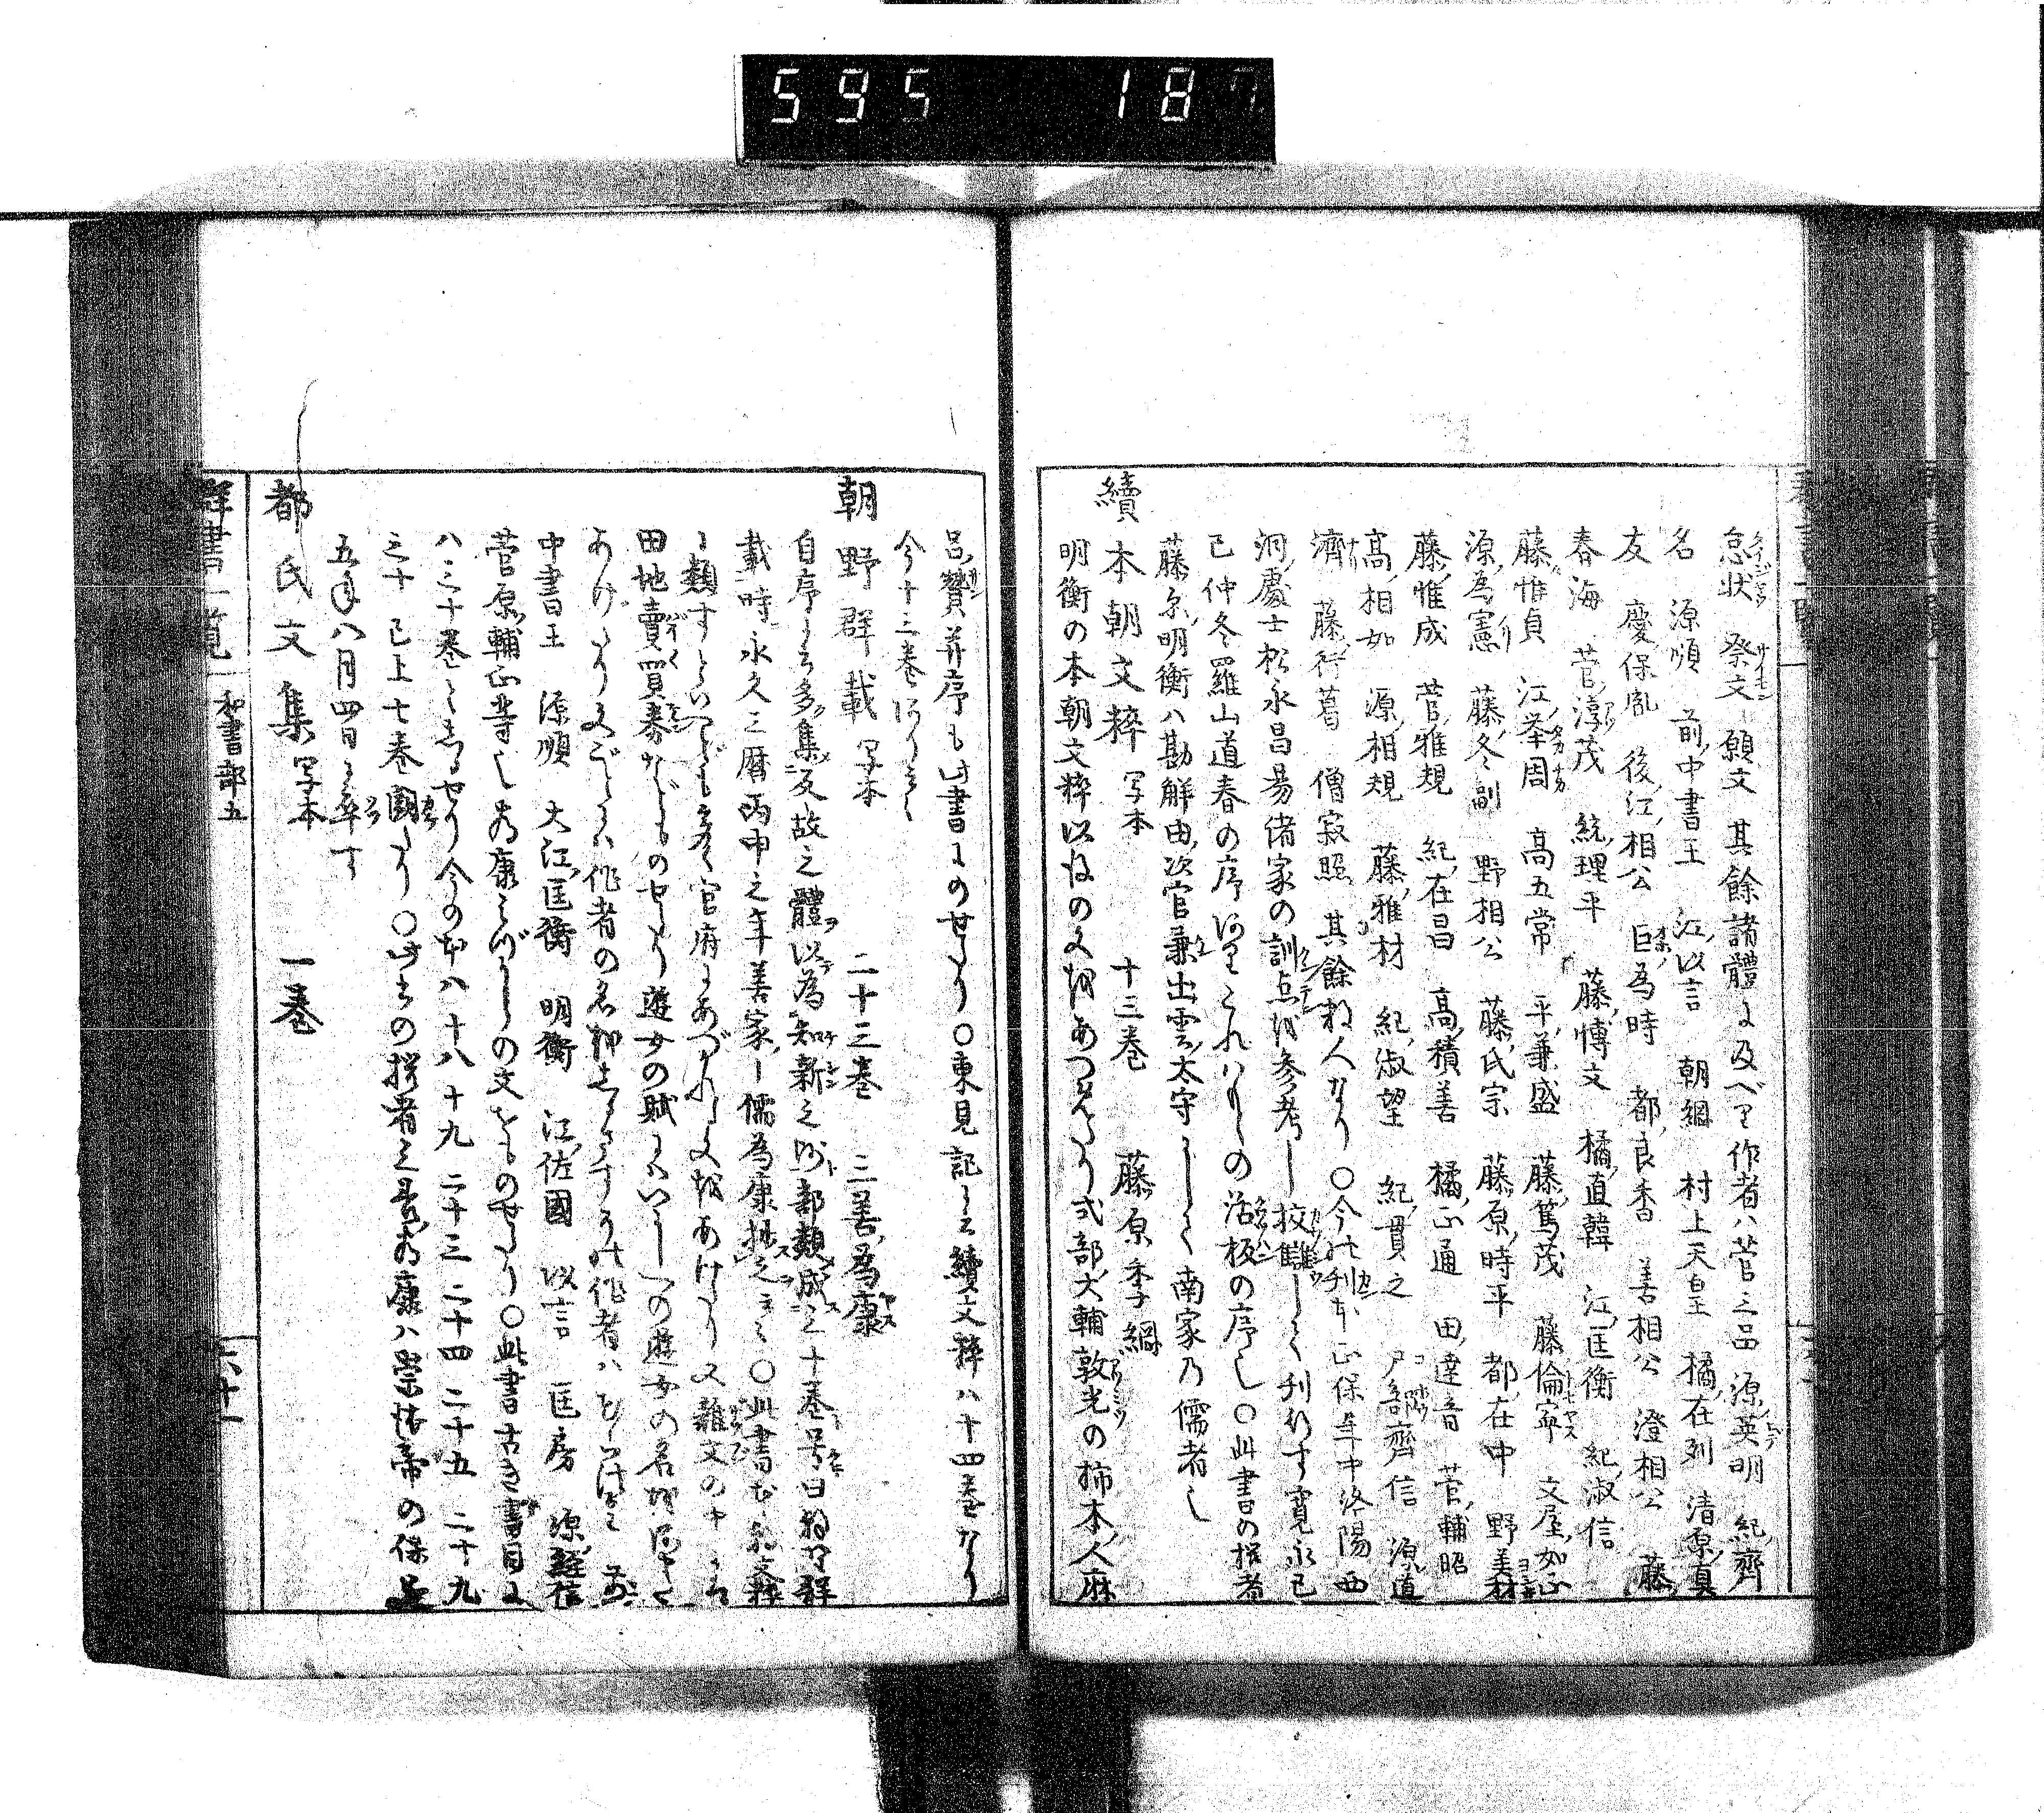 595 187
怠状 祭文 願文 其餘諸體に及べり作者ハ菅三品 源英明 紀齊
名 源順 前中書王 江以言 朝綱 村上天皇 橘在列 清原真
友 慶保胤 後江相公 巨為時 都良香 善相公 澄相公 藤
春海 菅淳茂 統理平 藤博文 橘直幹 江匡衡 紀淑信
藤惟貞 江挙周 高五常 平兼盛 藤篤茂 藤倫寧 文屋如正
源為憲 藤冬副 野相公 藤氏宗 藤原時平 都在中 野美材
藤惟成 菅雅規 紀在昌 高積善 橘正通 田達音 菅輔昭
高相如 源相規 藤雅材 紀淑望 紀貫之 戸部齊信 源道
濟 藤行葛 僧寂照 其餘数人なり 〇今の刊本正保年中洛陽西
洞處士松永昌易諸家の訓点を参考し校讎して刊行す寛永己
巳仲冬羅山道春の序ありこれハもとの活板の序也 〇此書の撰者
藤原明衡ハ勘解由次官兼出雲太守にして南家乃儒者也
續本朝文粹 写本 十三巻 藤原季綱
明衡の本朝文粹以後の文をあつめたり式部大輔敦光の柿本人麻
呂贊并序も此書にのせたり 〇東見記に云續文粹ハ十四巻なり
今十三巻ありと云々
朝野群載 写本 二十三巻 三善為康
自序に云多集反故之體以為知新之師部類成三十巻号曰朝野群
載時永久之暦丙申之年善家一儒為康抄之云々 〇此書本朝文粹
に類すといへども多く官府にあづかれる文をあげたり又雜文の中には
田地賣買券などものせたり遊女の賦にハいにしへの遊女の名をあまた
あげたり文ごとに作者の名を
中書王 源順 大江匡衡 明衡 江佐國 以言 匡房 源經信
菅原輔正等也為康みづからの文をものせたり 〇此書古き書目に
ハ三十巻としるせり今の本ハ十八 十九 二十三 二十四 二十五 二十九
三十 已上七巻闕たり 〇此書の撰者三善為康ハ崇徳帝の保延
五年八月四日に卒す
都氏文集 写本 一巻
群書一覧 和書部五 六十一